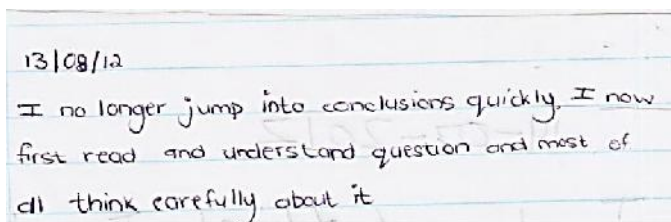 13/08/12
I no longer jump into conclusions quickly. I now
first read and understand question and most of
all think carefully about it